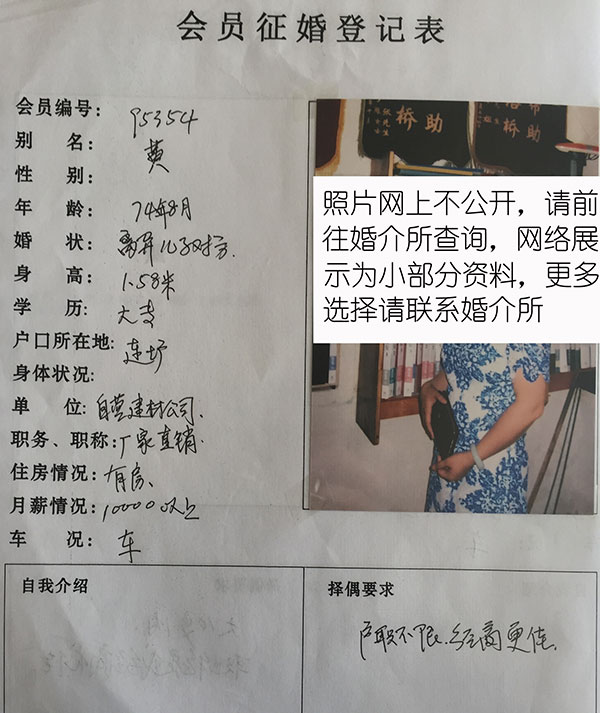 会员征婚登记表
会员编号: 95354
别名: 黄
性别:
年龄: 74年8月
婚状: 离异儿子对方
身高: 1.58米
学历: 大专
户口所在地:
身体状况:
单位: 自营建材公司.
职务、职称: 厂家直销.
住房情况: 有房、
月薪情况: 10000以上
车况: 车
助桥
张先生
桥
助
照片网上不公开，请前
往婚介所查询，网络展
示为小部分资料，更多
选择请联系婚介所
自我介绍
择偶要求
户职不限.经商更佳.